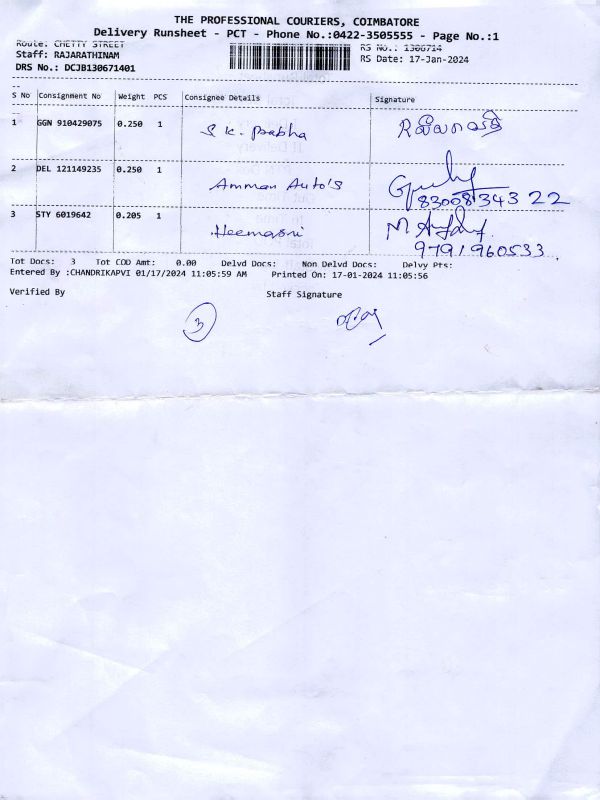 THE PROFESSIONAL COURIERS, COIMBATORE
Delivery Runsheet - PCT - Phone No.:0422-3505555 - Page No.:1
Route: CHETTY STREET RS No.: 1306714
Staff: RAJARATHINAM RS Date: 17-Jan-2024
DRS No.: DCJB130671401
S No Consignment No Weight PCS Consignee Details Signature
1 GGN 910429075 0.250 1 S K. Prabha
2 DEL 121149235 0.250 1 Amman Auto's
83008 343 22
3 STY 6019642 0.205 1 Heemasri M
9791960533
Tot Docs: 3 Tot COD Amt: 0.00 Delvd Docs: Non Delvd Docs: Delvy Pts:
Entered By :CHANDRIKAPVI 01/17/2024 11:05:59 AM Printed On: 17-01-2024 11:05:56
Verified By Staff Signature
3